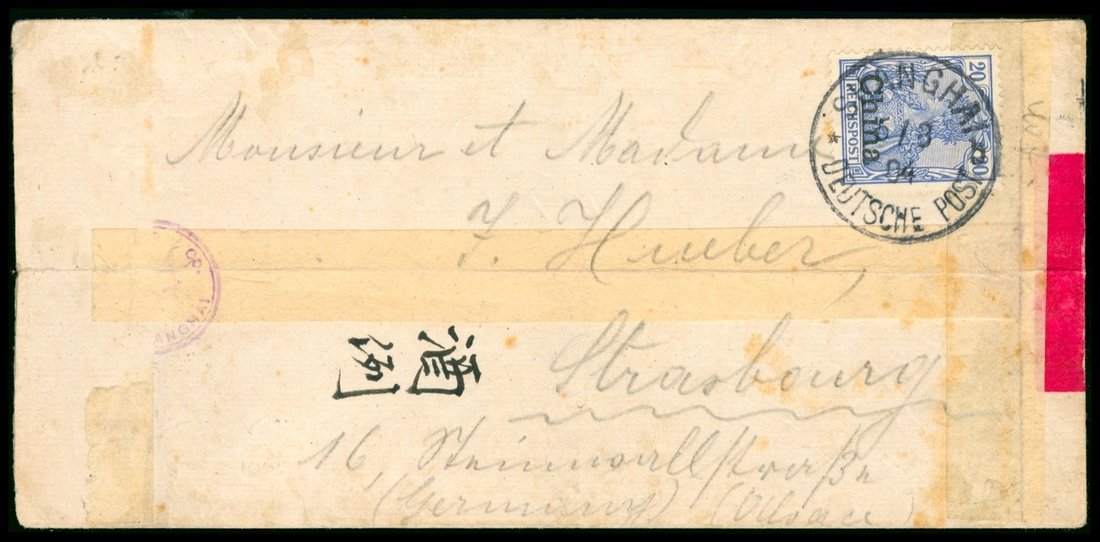 Monsieur et Madame
J. Hueber,
Strasbourg
16, Steinwallstraße
(Germany) (Alsace)
20
China
REICHSPOST
20
SHANGHAI
/3
04
* DEUTSCHE POST
ANGHAI